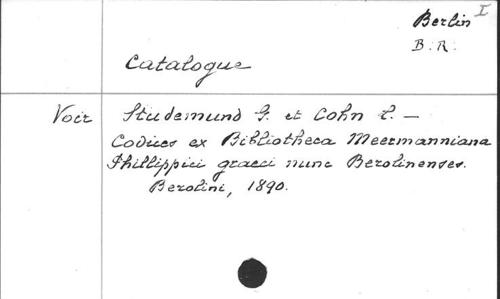 Berlin I
B. R.
Catalogue
Voir Studemund G. et Cohn L. —
Codices ex Bibliotheca Meermanniana
Phillippici graeci nunc Berolinenses.
Berolini, 1890.